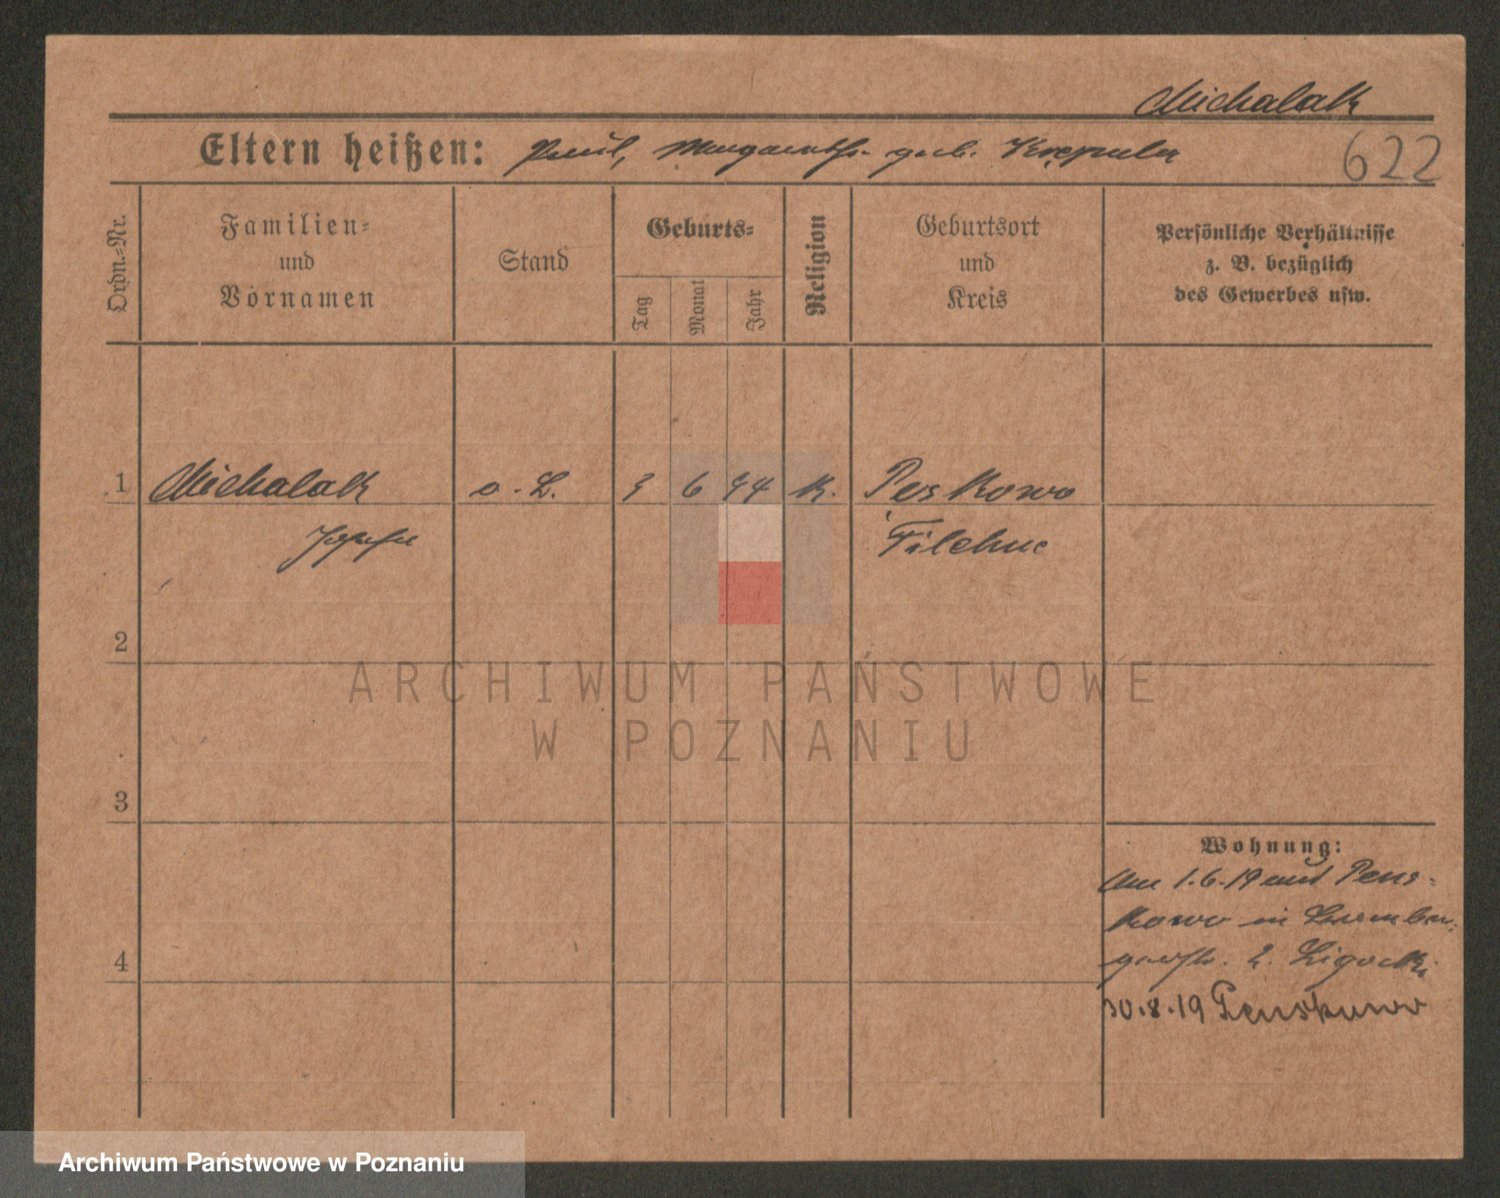 Michalak
Eltern heißen: Paul, Margarethe geb. Krzepela
622
Ordn.-Nr.
Familien-
und
Vornamen
Stand
Geburts-
Tag
Monat
Jahr
Religion
Geburtsort
und
Kreis
Persönliche Verhältnisse
z. B. bezüglich
des Gewerbes usw.
1 Michalak o. L. 9 6 94 K. Peskowo
Josefa Filehne
2
ARCHIWUM PAŃSTWOWE
W POZNANIU
3
Wohnung:
Am 1.6.19 aus Pens-
kowo in
4
2. Ligocki
30.8.19 Penskowo
Archiwum Państwowe w Poznaniu